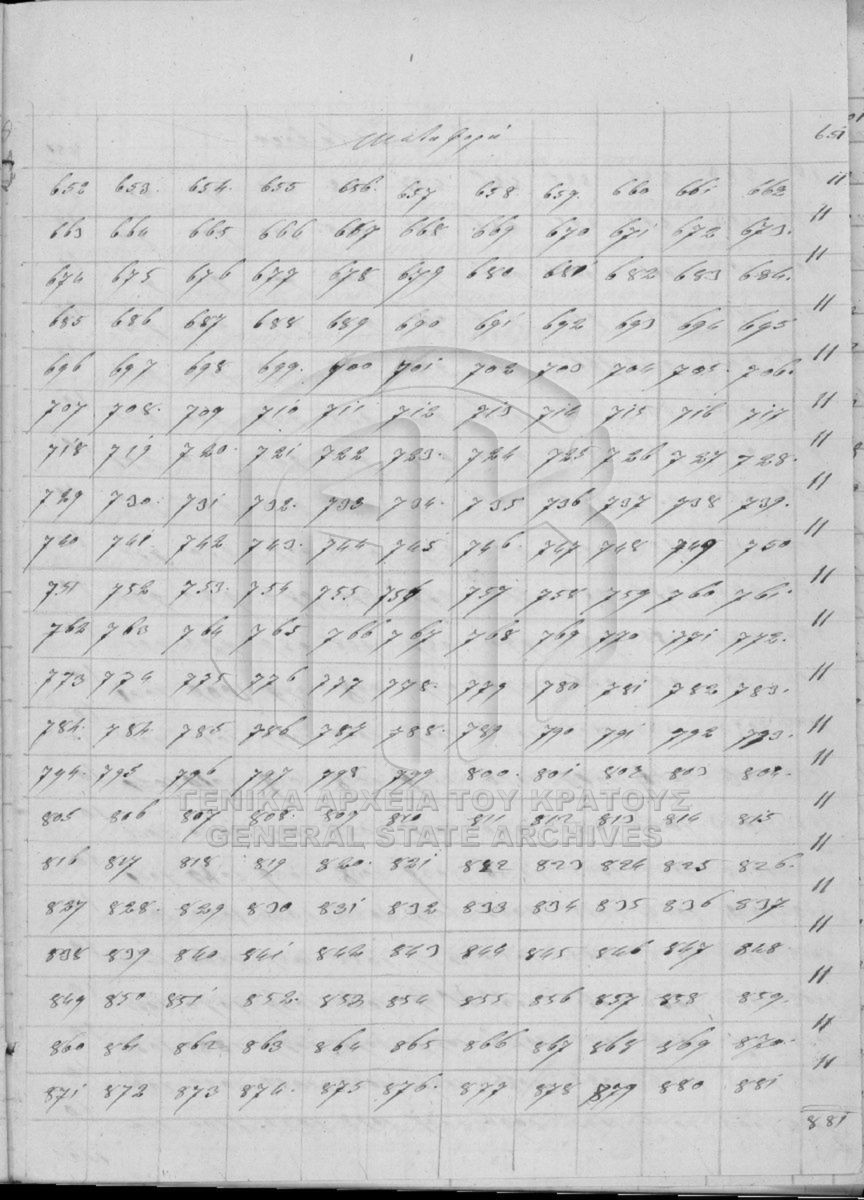 Μεταφορά 651
652 653. 654. 655 656. 657 658. 659. 660 661 662 11
663 664 665 666 667 668 669 670 671 672 673. 11
674 675 676 677 678 679 680 681 682 683 684. 11
685 686 687 688 689 690 691 692 693 694 695 11
696 697 698 699. 700 701 702 703 704 705. 706. 11
707 708. 709 710 711 712 713 714 715 716 717 11
718 719 720. 721 722 723. 724 725 726 727 728. 11
729 730. 731 732. 733 734. 735 736 737 738 739. 11
740 741 742 743. 744 745 746. 747 748 749 750 11
751 752 753. 754 755 756 757 758 759 760 761. 11
762 763 764 765 766 767 768 769 770 771 772. 11
773 774 775 776 777 778. 779 780 781 782 783. 11
784. 784 785 786 787 788. 789 790 791 792 793. 11
794. 795 796 797 798 799 800. 801 802 803 804. 11
805 806 807 808. 809 810 811 812 813 814 815 11
816 817 818 819 820. 821 822 823 824 825 826. 11
827 828. 829 830 831 832 833 834 835 836 837 11
838 839 840 841 842 843 844 845 846 847 848. 11
849 850 851 852. 853 854 855 856 857 858 859. 11
860 861 862. 863 864 865 866 867 868 869 870. 11
871 872 873 874. 875 876. 877 878 879 880 881 11
881
ΓΕΝΙΚΑ ΑΡΧΕΙΑ ΤΟΥ ΚΡΑΤΟΥΣ
GENERAL STATE ARCHIVES